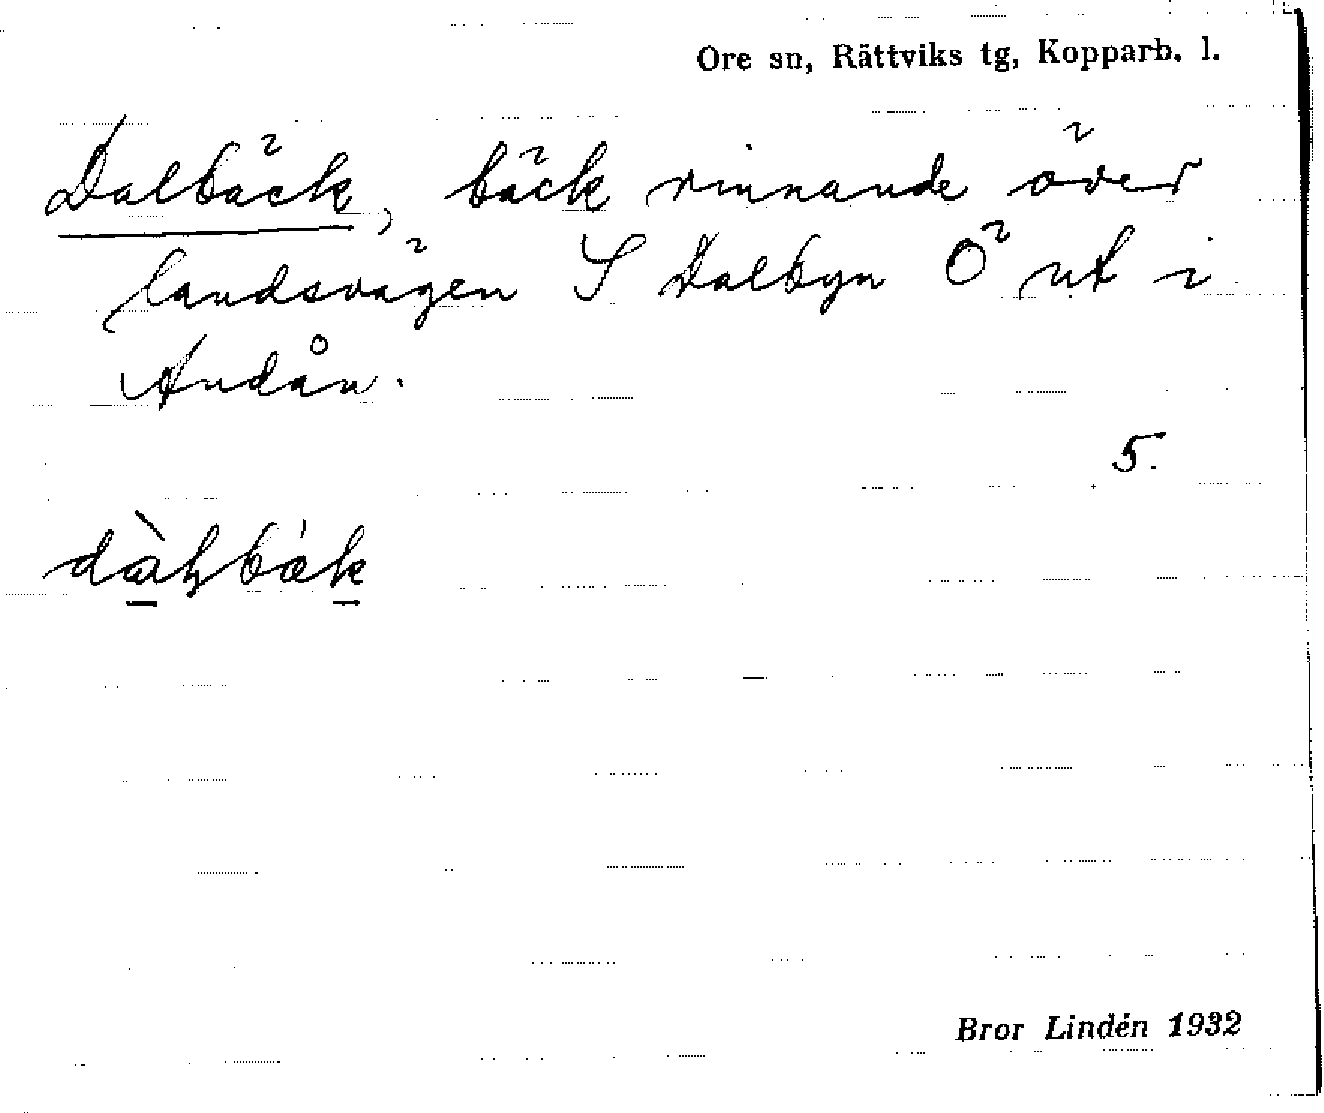 Ore sn, Rättviks tg, Kopparb. l.
Dalbäck, bäck rinnande över
landsvägen S Dalbyn Ö ut i
Andån.
5.
Bror Lindén 1932